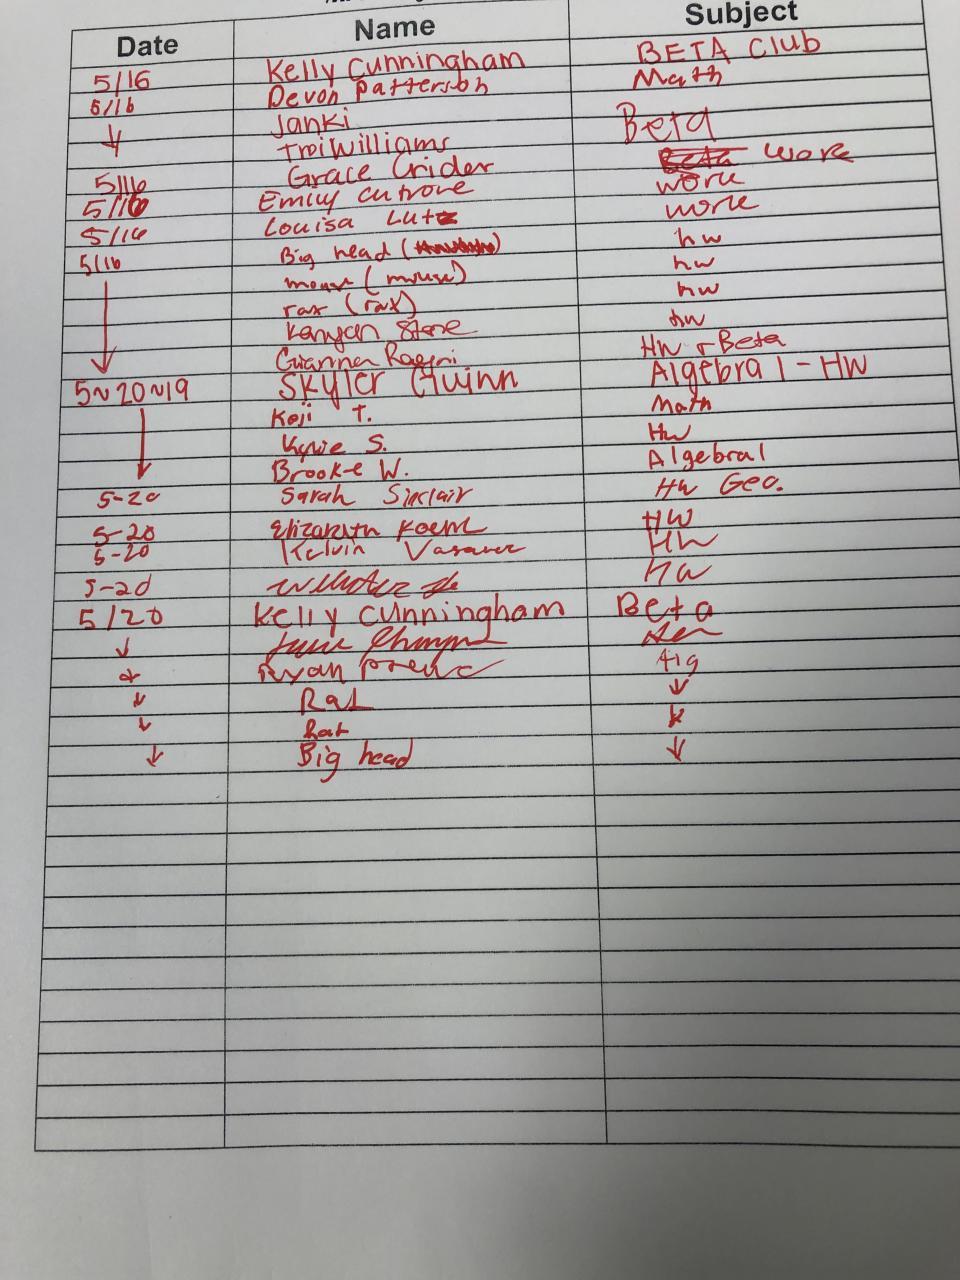 Date Name Subject
5/16 Kelly Cunningham BETA Club
5/16 Devon Patterson Math
↓ Janki Beta
Troi Williams
5/16 Grace Crider work
5/16 Emily Cutrone work
5/16 Louisa Lutz work
5/16 Big head hw
mouse (mouse) hw
rat (rat) hw
Kenyan Stone hw
Gianna Ragini HW + Beta
5~20~19 Skyler Guinn Algebra 1 - HW
Koji T. Math
Kylie S. HW
Brooke W. Algebra 1
5-20 Sarah Sinclair HW Geo.
5-20 Elizabeth HW
5-20 Kelvin HW
5-20 HW
5/20 Kelly Cunningham Beta
↓
↓ Ryan Alg
↓ Rat ↓
↓ Rat ↓
↓ Big head ↓